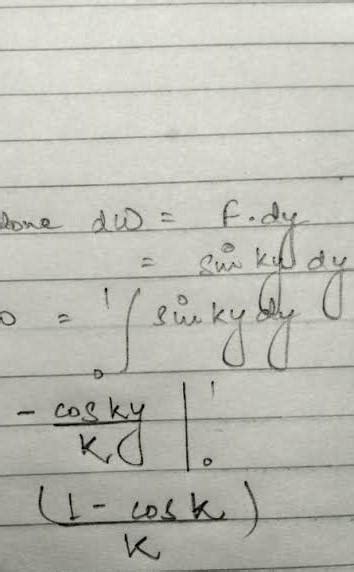 done dW = F.dy
= sin ky dy
= ₀∫¹ sin ky dy
- cos ky / k |₀¹
(1 - cos k / k)